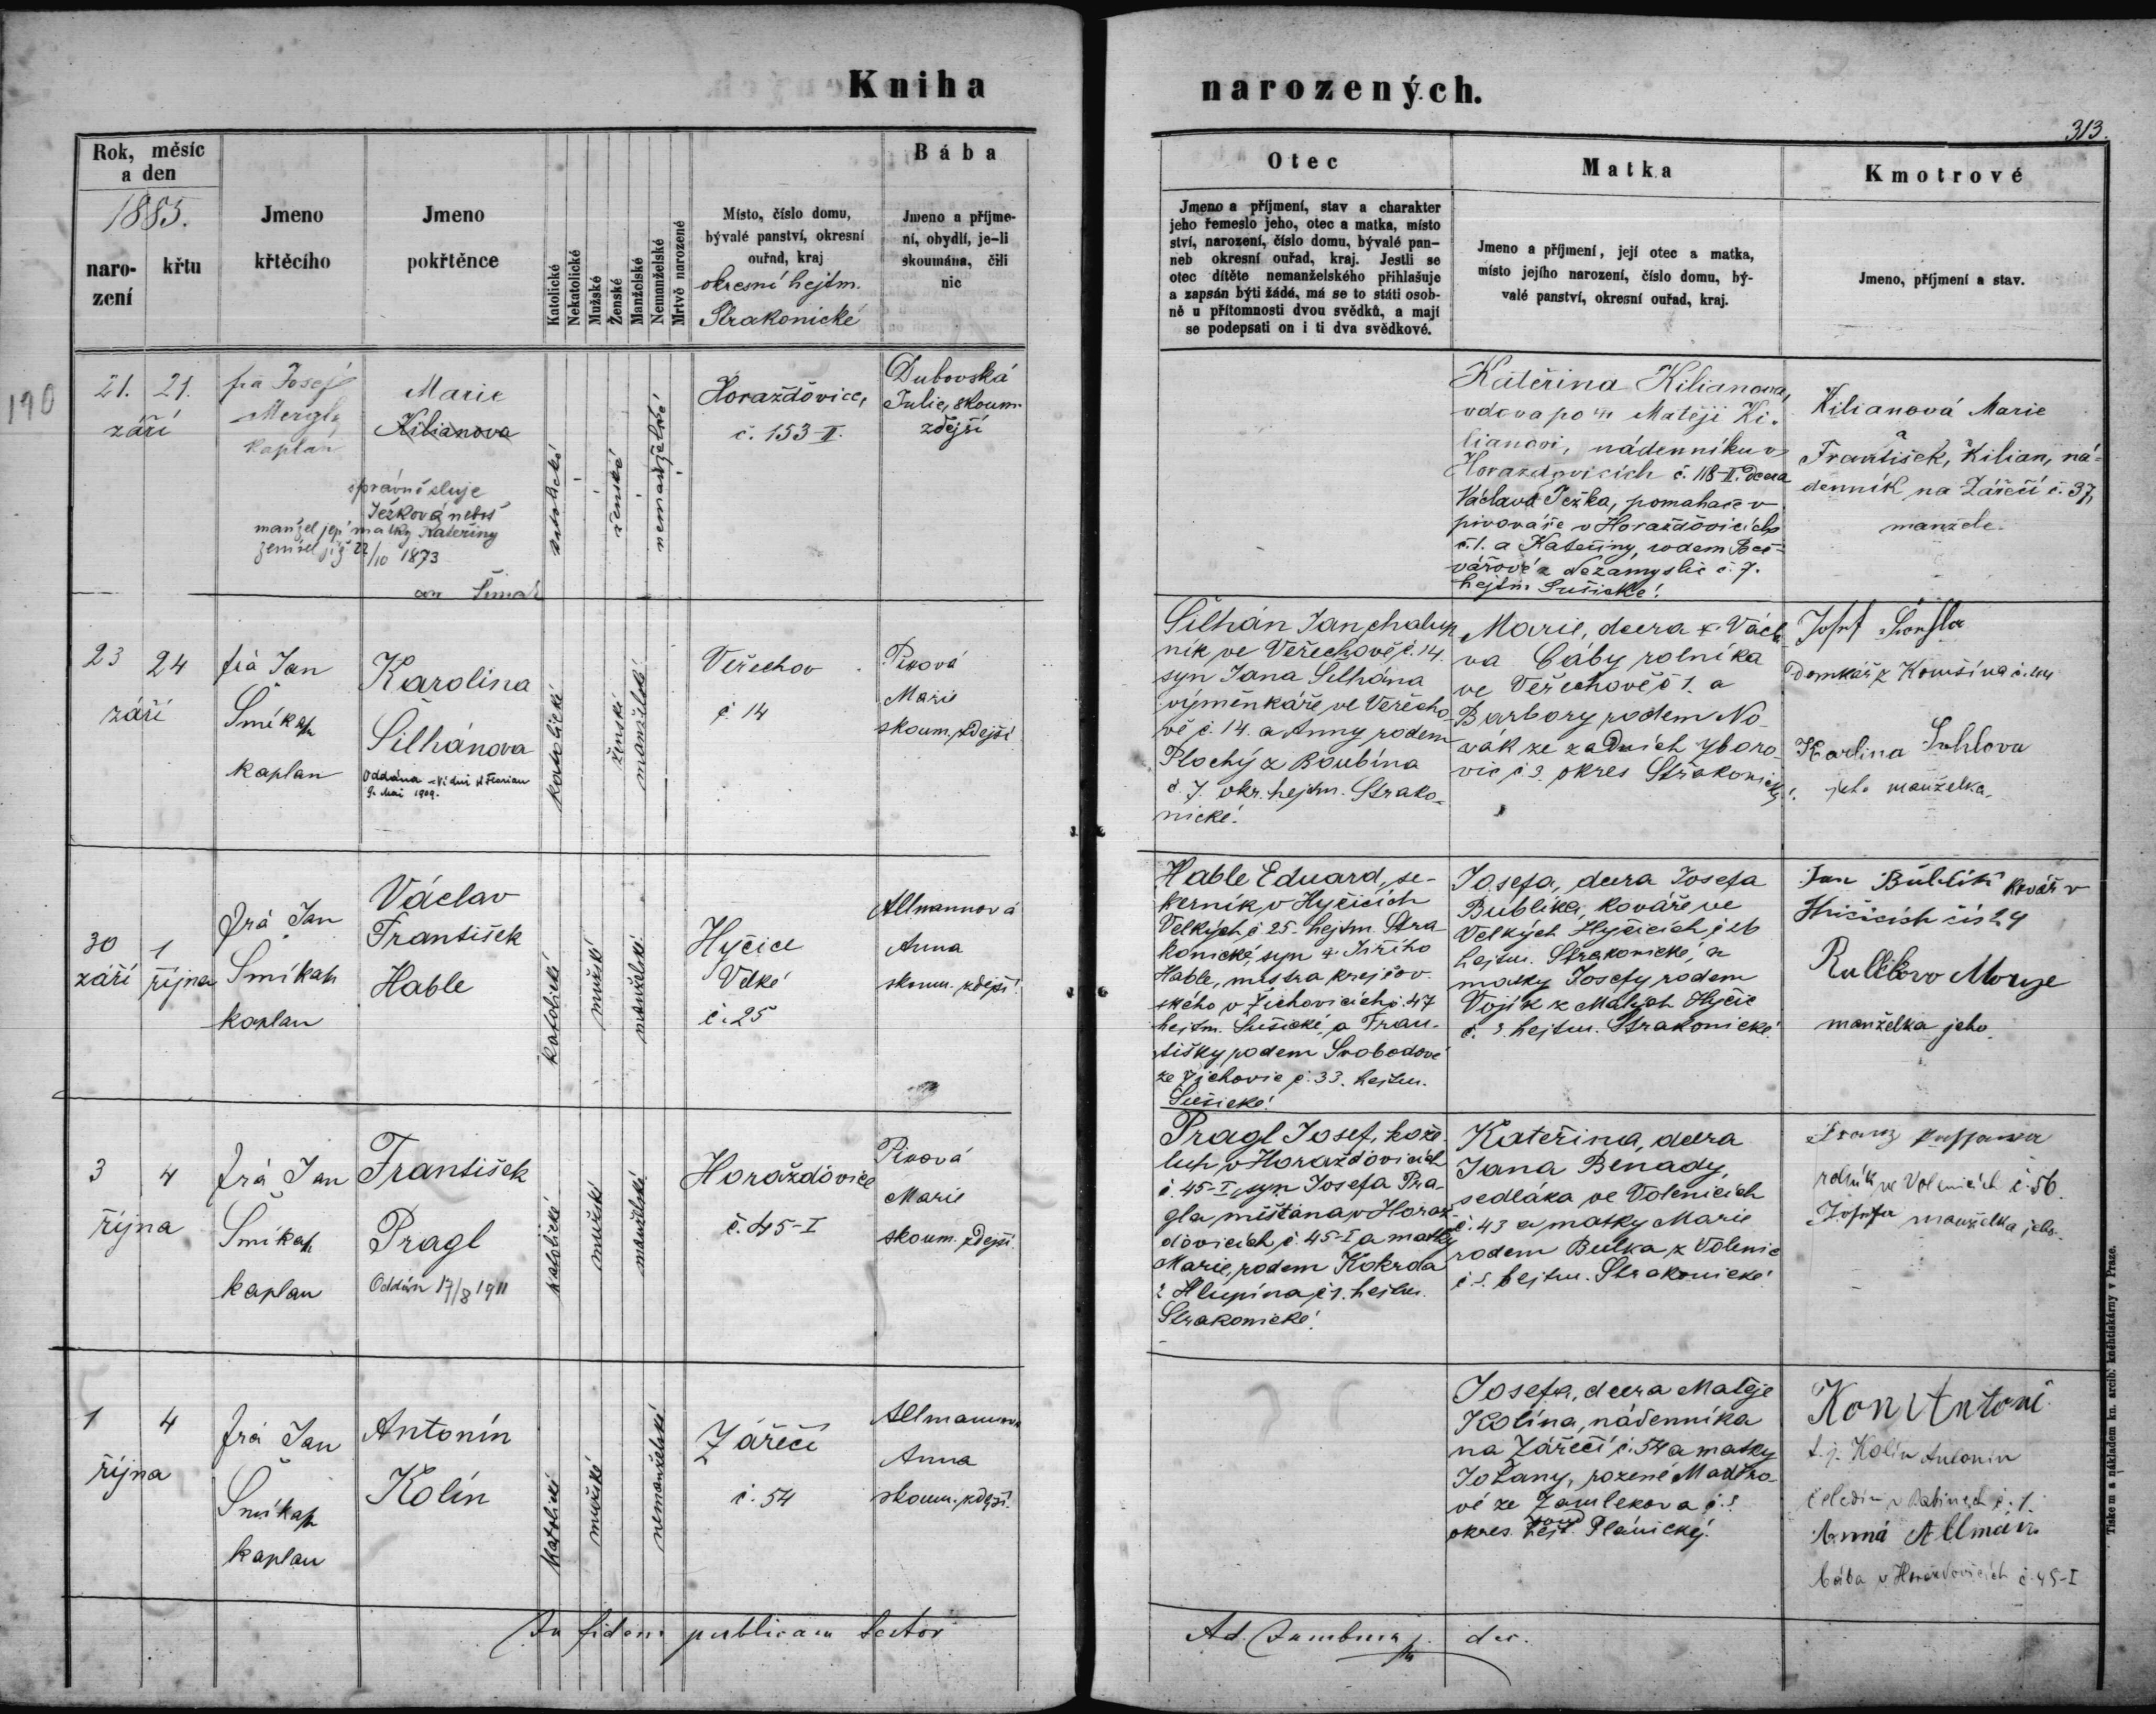 Kniha
narozených.
313.
Rok, měsíc
a den
1885.
naro-
zení
křtu
Jmeno
křtěcího
Jmeno
pokřtěnce
Katolické
Nekatolické
Mužské
Ženské
Manželské
Nemanželské
Mrtvě narozené
Místo, číslo domu,
bývalé panství, okresní
ouřad, kraj
okresní hejtm.
Strakonické
Bába
Jmeno a příjme-
ní, obydlí, je-li
skoumána, čili
nic
Otec
Jmeno a příjmení, stav a charakter
jeho řemeslo jeho, otec a matka, místo
ství, narození, číslo domu, bývalé pan-
neb okresní ouřad, kraj. Jestli se
otec dítěte nemanželského přihlašuje
a zapsán býti žádá, má se to státi osob-
ně u přítomnosti dvou svědků, a mají
se podepsati on i ti dva svědkové.
Matka
Jmeno a příjmení, její otec a matka,
místo jejího narození, číslo domu, bý-
valé panství, okresní ouřad, kraj.
Kmotrové
Jmeno, příjmení a stav.
190
21. 21.
září
fra Josef
Mergl
kaplan
Marie
Kilianova
správně sluje
Ježková neboť
manžel její matky Kateřiny
zemřel již 22/10 1873
katolické
ženské
nemanželské
Horažďovice,
č. 153-II.
Dubovská
Julie, skoum.
zdejší
Kateřina Kilianova,
vdova po † Matěji Ki-
lianovi, nádenníku v
Horažďovicích č. 118-II. dcera
Václava Ježka, pomahače v
pivováře v Horažďovicích
č. 1. a Kateřiny, rodem Beč-
vářové z Nezamyslic č. 7.
hejtm. Sušické.
Kilianová Marie
František, Kilian, ná-
denník na Zářečí č. 37,
manželé.
23 24
září
frà Jan
Smíkal
kaplan
Karolina
Šilhánova
Oddána Vídni
9. Mai 1909.
katolické
ženské
manželské
Veřechov
č. 14
Pixová
Marie
skoum. zdejší
Šilhán Jan chalup
ník ve Veřechově č. 14.
syn Jana Šilhána
výměnkáře ve Veřecho-
vě č. 14. a Anny rodem
Plochý z Boubína
č. 7. okr. hejtm. Strako-
nické.
Marie, dcera † Václ
va Cáby rolníka
ve Veřechově č 1. a
Barbory rodem No-
vák ze zadních Zboro-
vic č 3. okres Strakonický.
Josef
Domkář z Komšína č. 44
Karlina
jeho manželka.
30 1
září října
frà Jan
Smíkal
kaplan
Václav
František
Hable
katolické
mužské
manželské
Hyčice
Velké
č. 25
Allmannová
Anna
skoum. zdejší
Hable Eduard, se-
kerník v Hyčicích
Velkých č 25. hejtm. Stra
konické, syn † Jiřího
Hable, mistra krejčov-
ského v Žichovicích č. 47
hejtm. Sušické, a Fran-
tišky rodem Svobodové
ze Žichovic č. 33. hejtm.
Sušické.
Josefa, dcera Josefa
Bublíka, kováře ve
Velkých Hyčicích č 26
hejtm. Strakonické, a
matky Josefy rodem
Voják z Malých Hyčic
č. 3. hejtm. Strakonické.
Jan Bublík kovář v
Hičicích čís 24
manželka jeho.
3 4
října
frà Jan
Smíkal
kaplan
František
Pragl
Oddán 17/8 1911
katolické
mužské
manželské
Horažďovice
č. 45-I
Pixová
Marie
skoum. zdejší.
Pragl Josef, kože-
luh v Horažďovicích
č. 45-I, syn Josefa Pra-
gla měšťana v Horaž-
ďovicích č. 45-I a matky
Marie, rodem Kokrda
z Hlupína č 1. hejtm.
Strakonické.
Kateřina, dcera
Jana Benady,
sedláka ve Volenicích
č. 43 a matky Marie
rodem Bulka z Volenic
č 5. hejtm. Strakonické.
Franz
rolník ve Volenicích č. 56.
Josefa manželka jeho.
1 4
října
frà Jan
Smíkal
kaplan
Antonín
Kolín
katolické
mužské
nemanželské
Zářečí
č. 54
Allmannova
Anna
skoum. zdejší.
Josefa, dcera Matěje
Kolína, nádenníka
na Zářečí č. 54 a matky
Johany, rozené Maděro-
vé ze Zamlekova č. 5
okres. Plánický.
Kon Antoni
t. j. Kolín Antonín
čeledín v Babinech č. 1.
Anná Allmán
bába v Horažďovicích č 45-I
In fidem publicam testor
Ad. dec.
Tiskem a nákladem kn. arcib. knihtiskárny v Praze.